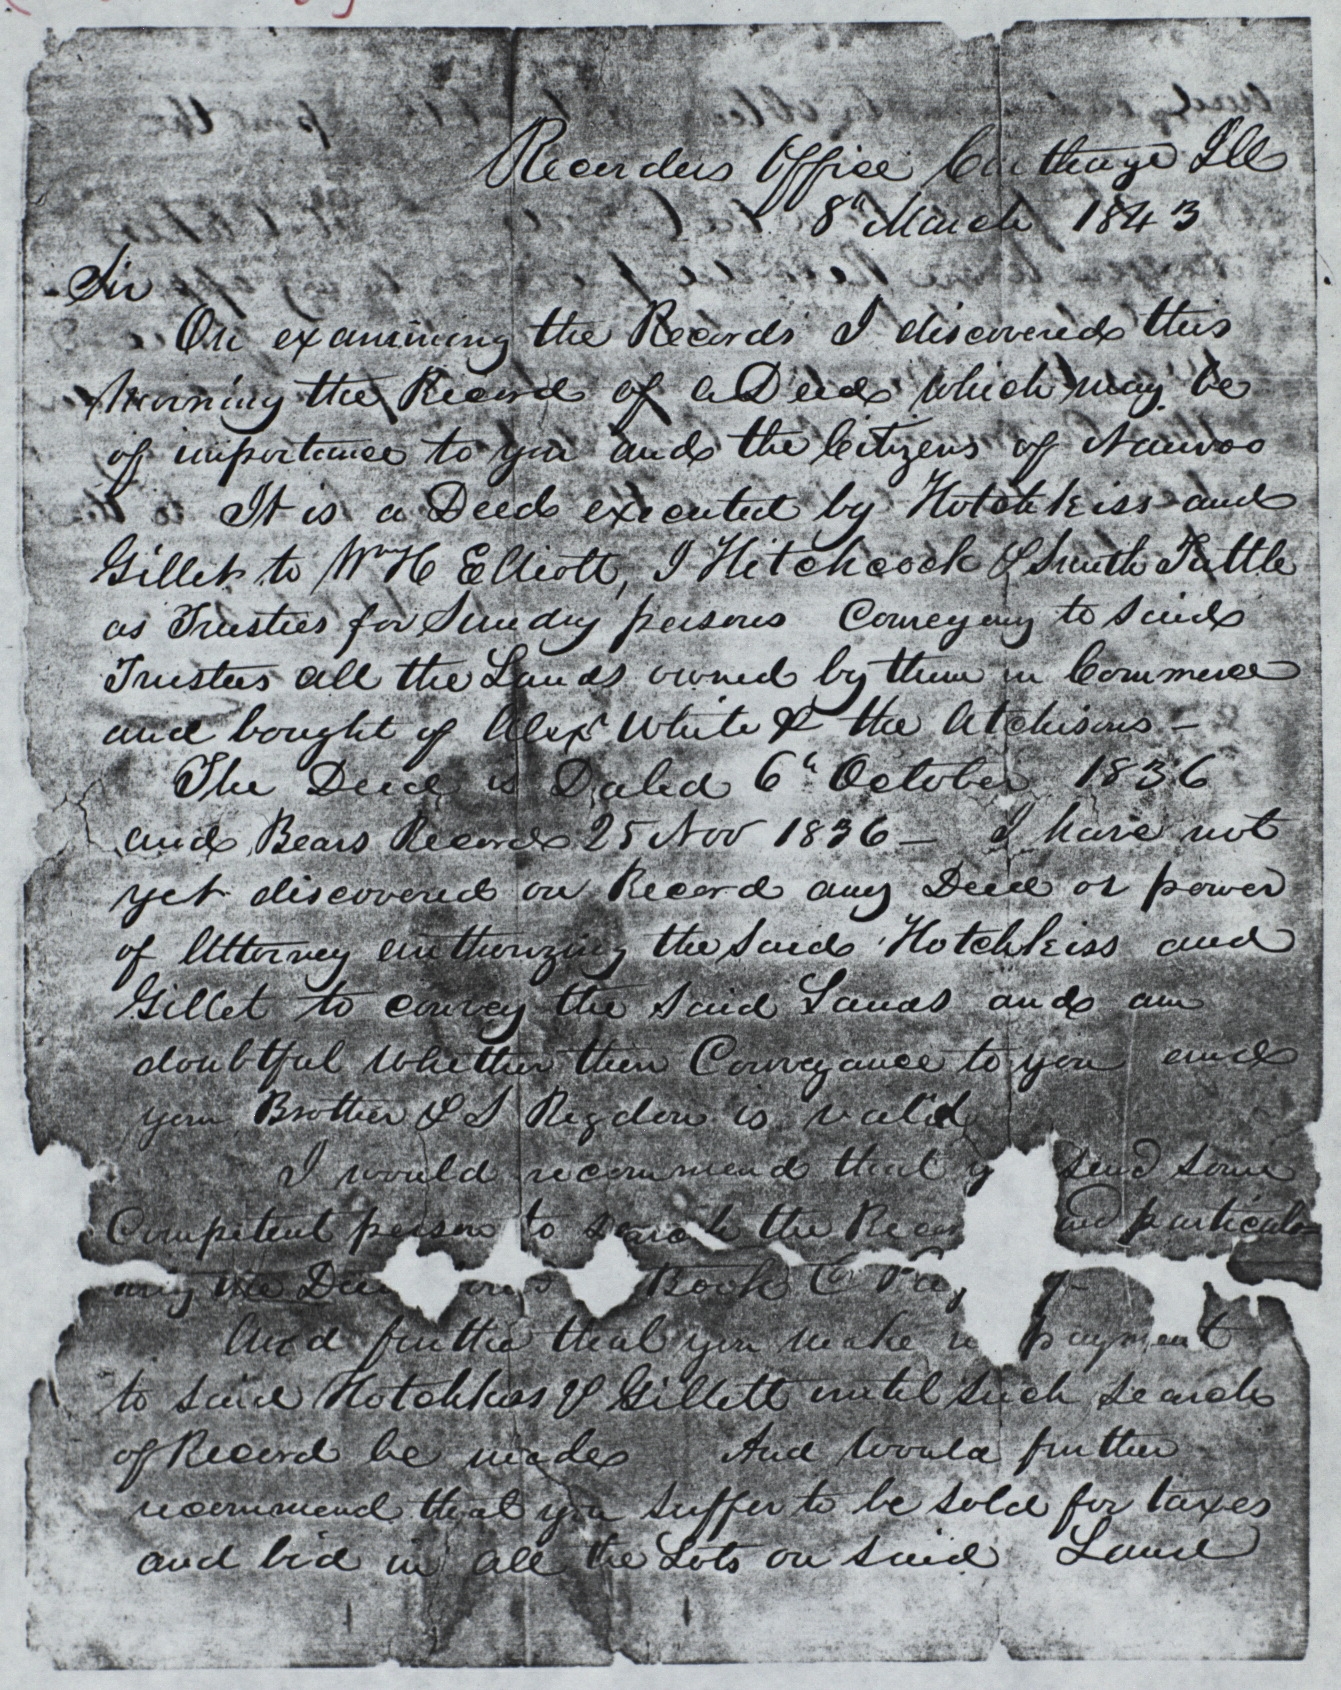 Recorders Office Carthage Ill
8" March 1843
Sir
On examining the Records I discovered this
morning the Record of a Deed which may be
of importance to you and the Citizens of Nauvoo
It is a Deed executed by Hotchkiss and
Gillet to Wm H Elliott, I Hitchcock & Smith Tuttle
as Trustees for Sundry persons Conveying to said
Trustees all the Lands owned by them in Commerce
and bought of Alexr White & the Atchisons -
The Deed is Dated 6" October 1836
and Bears Record 25 Nov 1836 - I have not
yet discovered on Record any Deed or power
of Attorney authorizing the said Hotchkiss and
Gillet to convey the said Lands and am
doubtful whether their Conveyance to you and
your Brother & S Rigdon is valid
I would recommend that y send some
Competent person to search the Recor and particular
the Book C
And further that you make payment
to said Hotchkiss & Gillett until such search
of Record be made And would further
recommend that you suffer to be sold for taxes
and bid in all the Lots on said Land